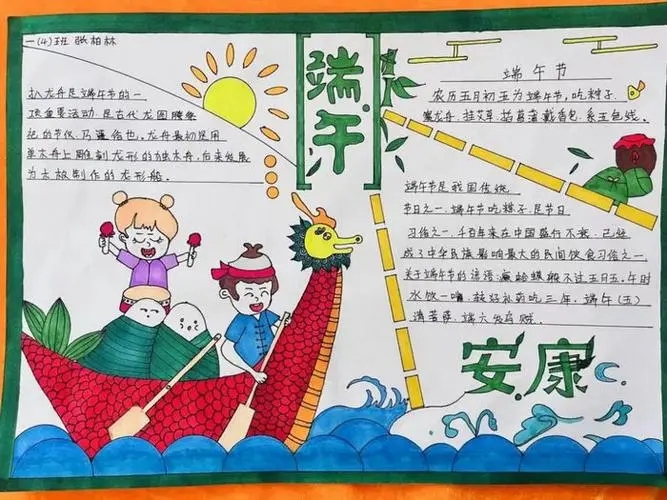 一(4)班 张柏林
扒龙舟是端午节的一
项重要活动,是古代龙图腾祭
祀的节仪,乃遗俗也。龙舟最初是用
单木舟上雕刻龙形的独木舟,后来发展
为木板制作的龙形船。
端午
端午节
农历五月初五为端午节,吃粽子
赛龙舟、挂艾草、插菖蒲戴香包、系五色线。
端午节是我国传统
节日之一,端午节吃粽子,是节日
习俗之一,千百年来在中国盛行不衰,已经
成了中华民族影响最大的民间饮食习俗之一
关于端午节的谚语:癞蛤蟆躲不过五月五。午时
水饮一嘴,较好补药吃三年。端午(五)
请菩萨,端六发乌贼。
安康